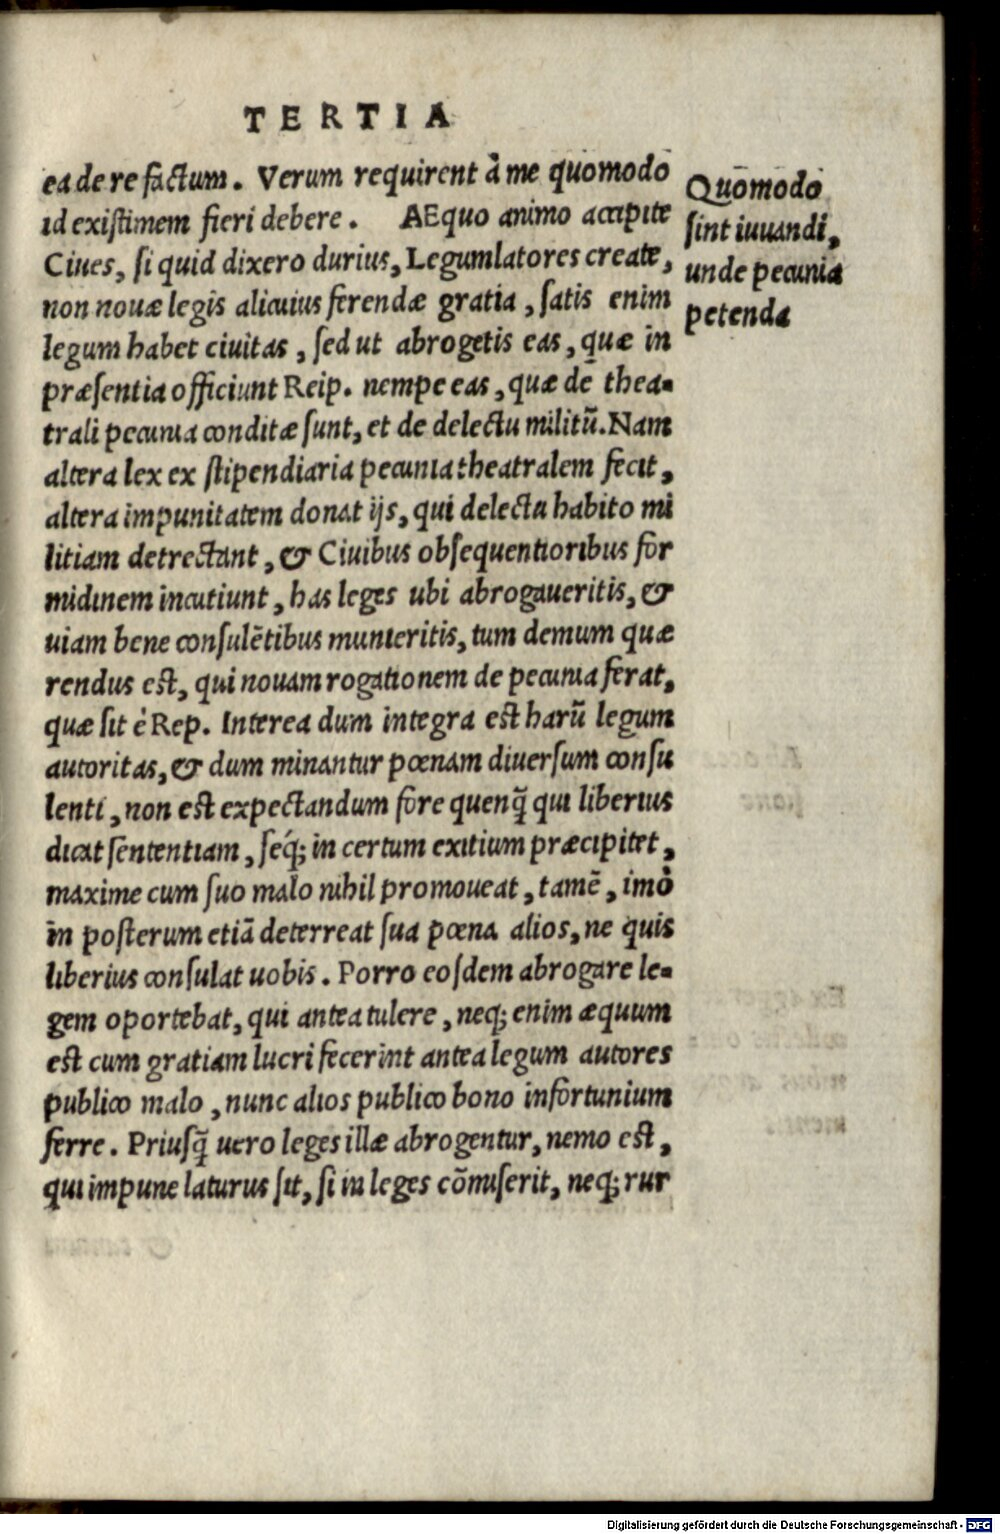 TERTIA
ea de re factum. Verum requirent à me quomodo
id existimem fieri debere. AEquo animo accipite
Ciues, si quid dixero durius, Legumlatores create,
non nouæ legis alicuius ferendæ gratia, satis enim
legum habet ciuitas, sed ut abrogetis eas, quæ in
præsentia officiunt Reip. nempe eas, quæ de thea-
trali pecunia conditæ sunt, et de delectu militũ. Nam
altera lex ex stipendiaria pecunia theatralem fecit,
altera impunitatem donat ijs, qui delectu habito mi
litiam detrectant, & Ciuibus obsequentioribus for
midinem incutiunt, has leges ubi abrogaueritis, &
uiam bene consulẽtibus munieritis, tum demum quæ
rendus est, qui nouam rogationem de pecunia ferat,
quæ sit è Rep. Interea dum integra est harũ legum
autoritas, & dum minantur pœnam diuersum consu
lenti, non est expectandum fore quenq̃ qui liberius
dicat sententiam, seq́; in certum exitium præcipitet,
maxime cum suo malo nihil promoueat, tamẽ, imò
in posterum etiã deterreat sua pœna alios, ne quis
liberius consulat uobis. Porro eosdem abrogare le-
gem oportebat, qui antea tulere, neq; enim æquum
est cum gratiam lucri fecerint antea legum autores
publico malo, nunc alios publico bono infortunium
ferre. Priusq̃ uero leges illæ abrogentur, nemo est,
qui impune laturus sit, si in leges cõmiserit, neq; rur
Quomodo
sint iuuandi,
unde pecunia
petenda
Digitalisierung gefördert durch die Deutsche Forschungsgemeinschaft - DFG